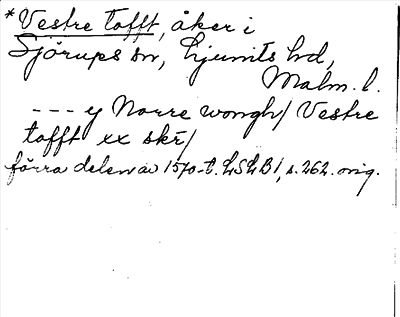 *Vestre tofft, åker i
Sjörups sn, Ljunits hd,
Malm. l.
--- y Norre wongh/ Vestre
tofft xx skr̄/
förra delen av 1570-t. LSLB 1, s. 262. orig.